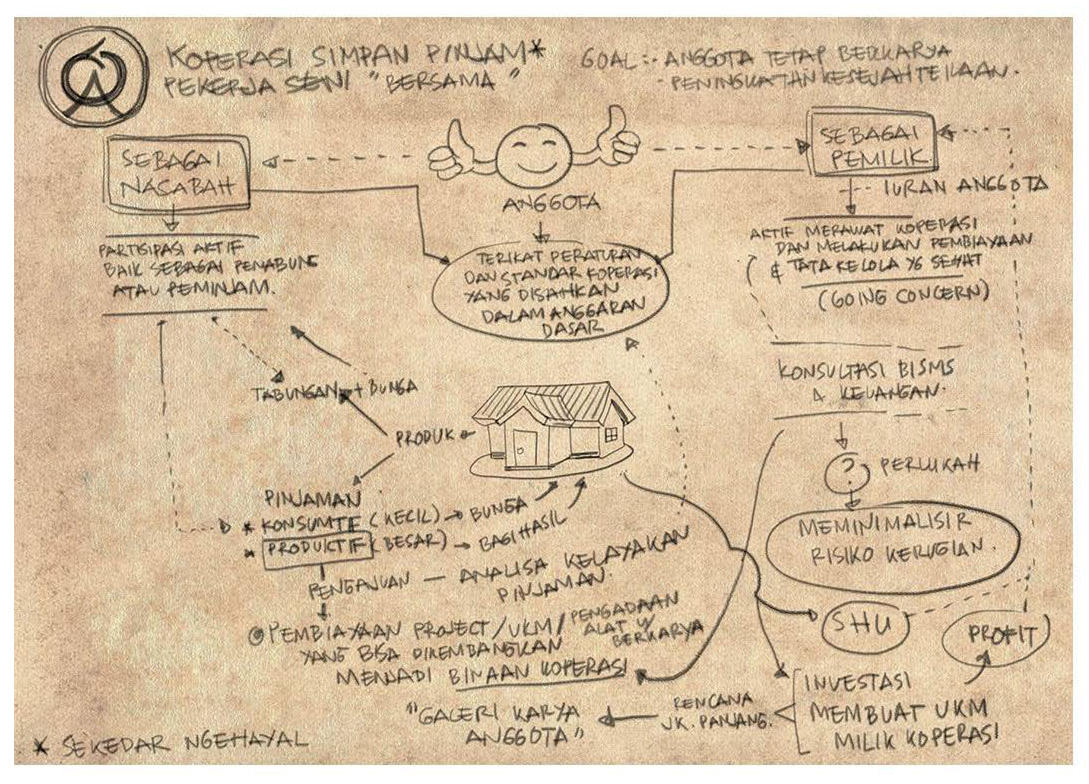 KOPERASI SIMPAN PINJAM*
PEKERJA SENI "BERSAMA"
GOAL: - ANGGOTA TETAP BERKARYA
- PENINGKATAN KESEJAHTERAAN.
SEBAGAI
NASABAH
ANGGOTA
SEBAGAI
PEMILIK
IURAN ANGGOTA
PARTISIPASI AKTIF
BAIK SEBAGAI PENABUNG
ATAU PEMINJAM.
TERIKAT PERATURAN
DAN STANDAR KOPERASI
YANG DISAHKAN
DALAM ANGGARAN
DASAR
AKTIF MERAWAT KOPERASI
DAN MELAKUKAN PEMBIAYAAN
& TATA KELOLA YG SEHAT
(GOING CONCERN)
TABUNGAN + BUNGA
PRODUK
KONSULTASI BISNIS
& KEUANGAN.
? PERLUKAH
MEMINIMALISIR
RISIKO KERUGIAN.
PINJAMAN
* KONSUMTIF (KECIL) → BUNGA
* PRODUKTIF (BESAR) → BAGI HASIL
PENGAJUAN — ANALISA KELAYAKAN
PINJAMAN.
PEMBIAYAAN PROJECT/UKM/PENGADAAN
ALAT U/
BERKARYA
YANG BISA DIKEMBANGKAN
MENJADI BINAAN KOPERASI
SHU
PROFIT
INVESTASI
MEMBUAT UKM
MILIK KOPERASI
RENCANA
JK. PANJANG.
"GALERI KARYA
ANGGOTA"
* SEKEDAR NGEHAYAL